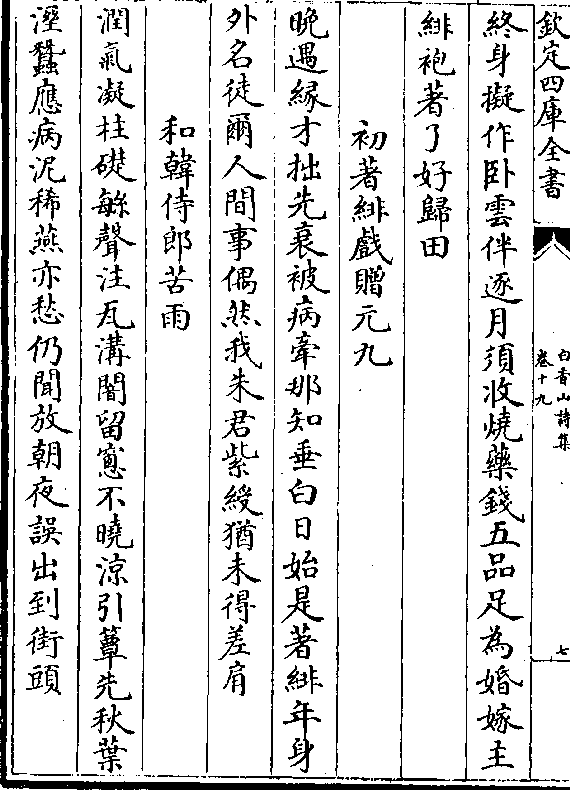 欽定四庫全書
白香山詩集
卷十九
七
終身擬作卧雲伴逐月須收燒藥錢五品足為婚嫁主
緋袍著了好歸田
初著緋戲贈元九
晚遇緣才拙先衰被病牽那知垂白日始是著緋年身
外名徒爾人間事偶然我朱君紫綬猶未得差肩
和韓侍郎苦雨
潤氣凝柱礎繁聲注瓦溝闇留窻不曉涼引簟先秋葉
溼蠶應病泥稀燕亦愁仍聞放朝夜誤出到街頭